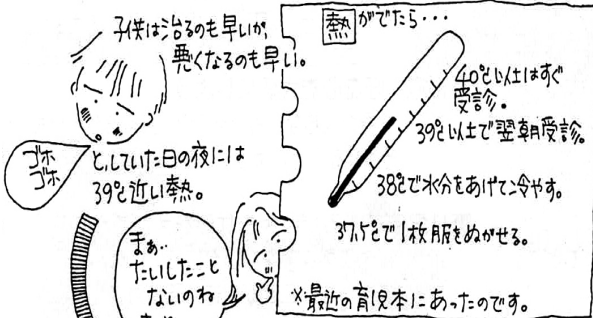 子供は治るのも早いが、
悪くなるのも早い。
ゴホ
ゴホ
と、していた日の夜には
39℃近い熱。
まぁ‥
たいしたこと
ないのね
熱がでたら・・・
40℃以上はすぐ
受診。
39℃以上で翌朝受診。
38℃で水分をあげて冷やす。
37.5℃で1枚服をぬがせる。
※最近の育児本にあったのです。